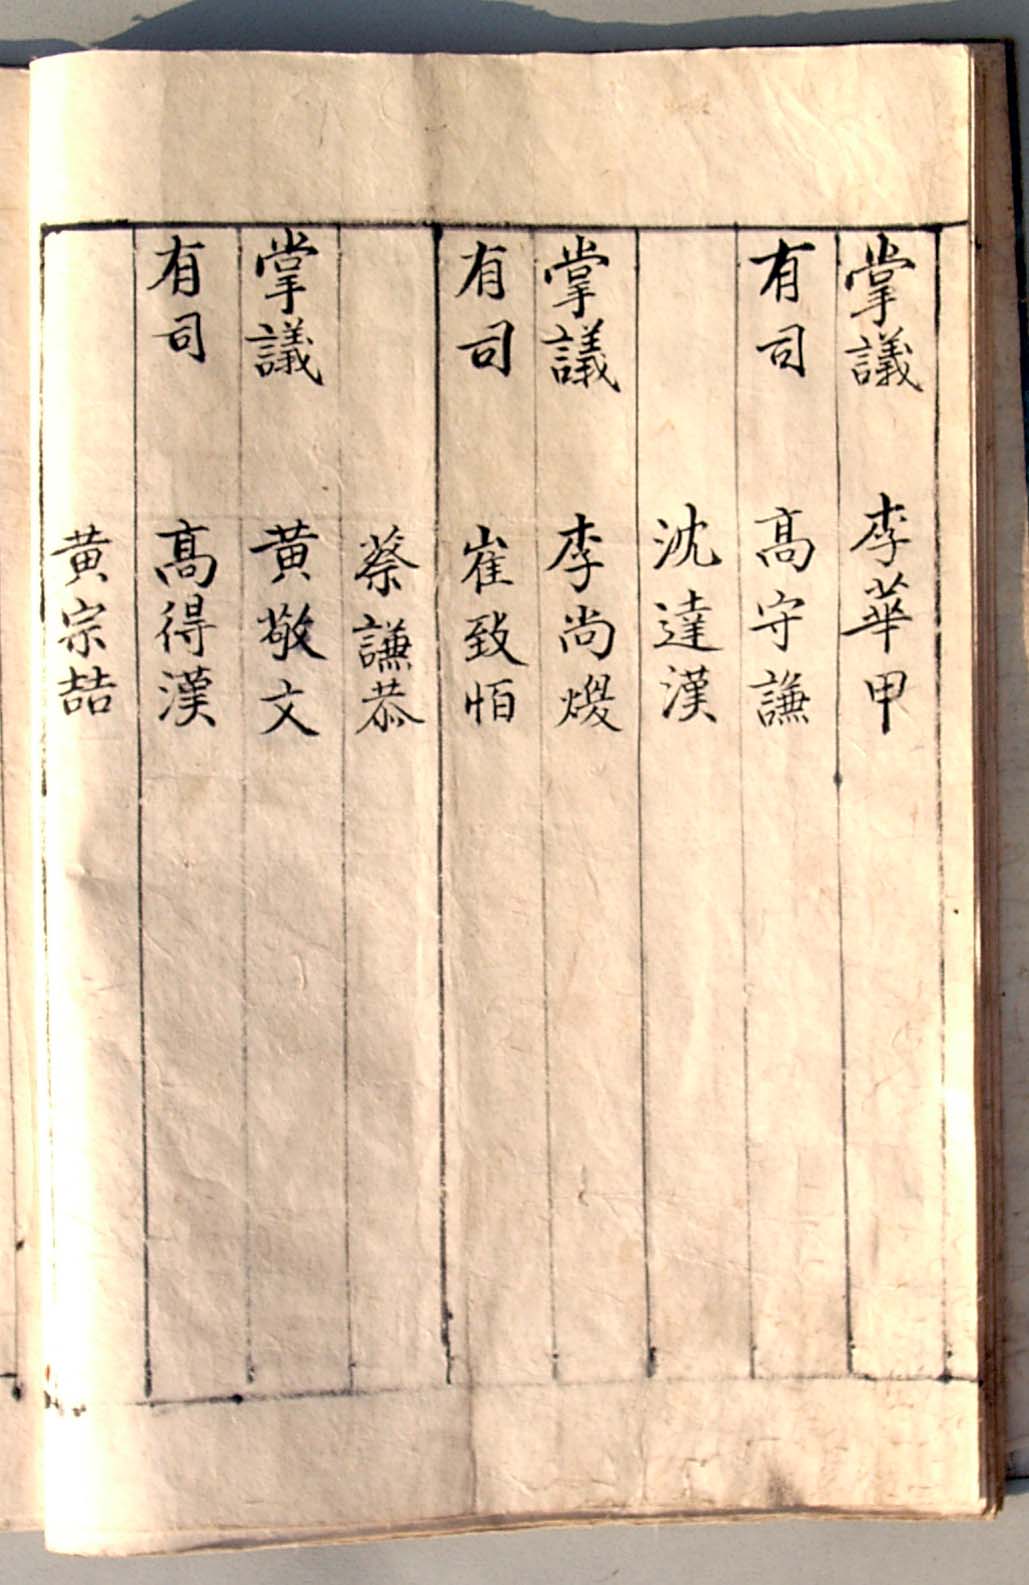 掌議 李華甲
有司 高守謙
沈達漢
掌議 李尚燰
有司 崔致怕
蔡謙恭
掌議 黃敬文
有司 高得漢
黃宗喆